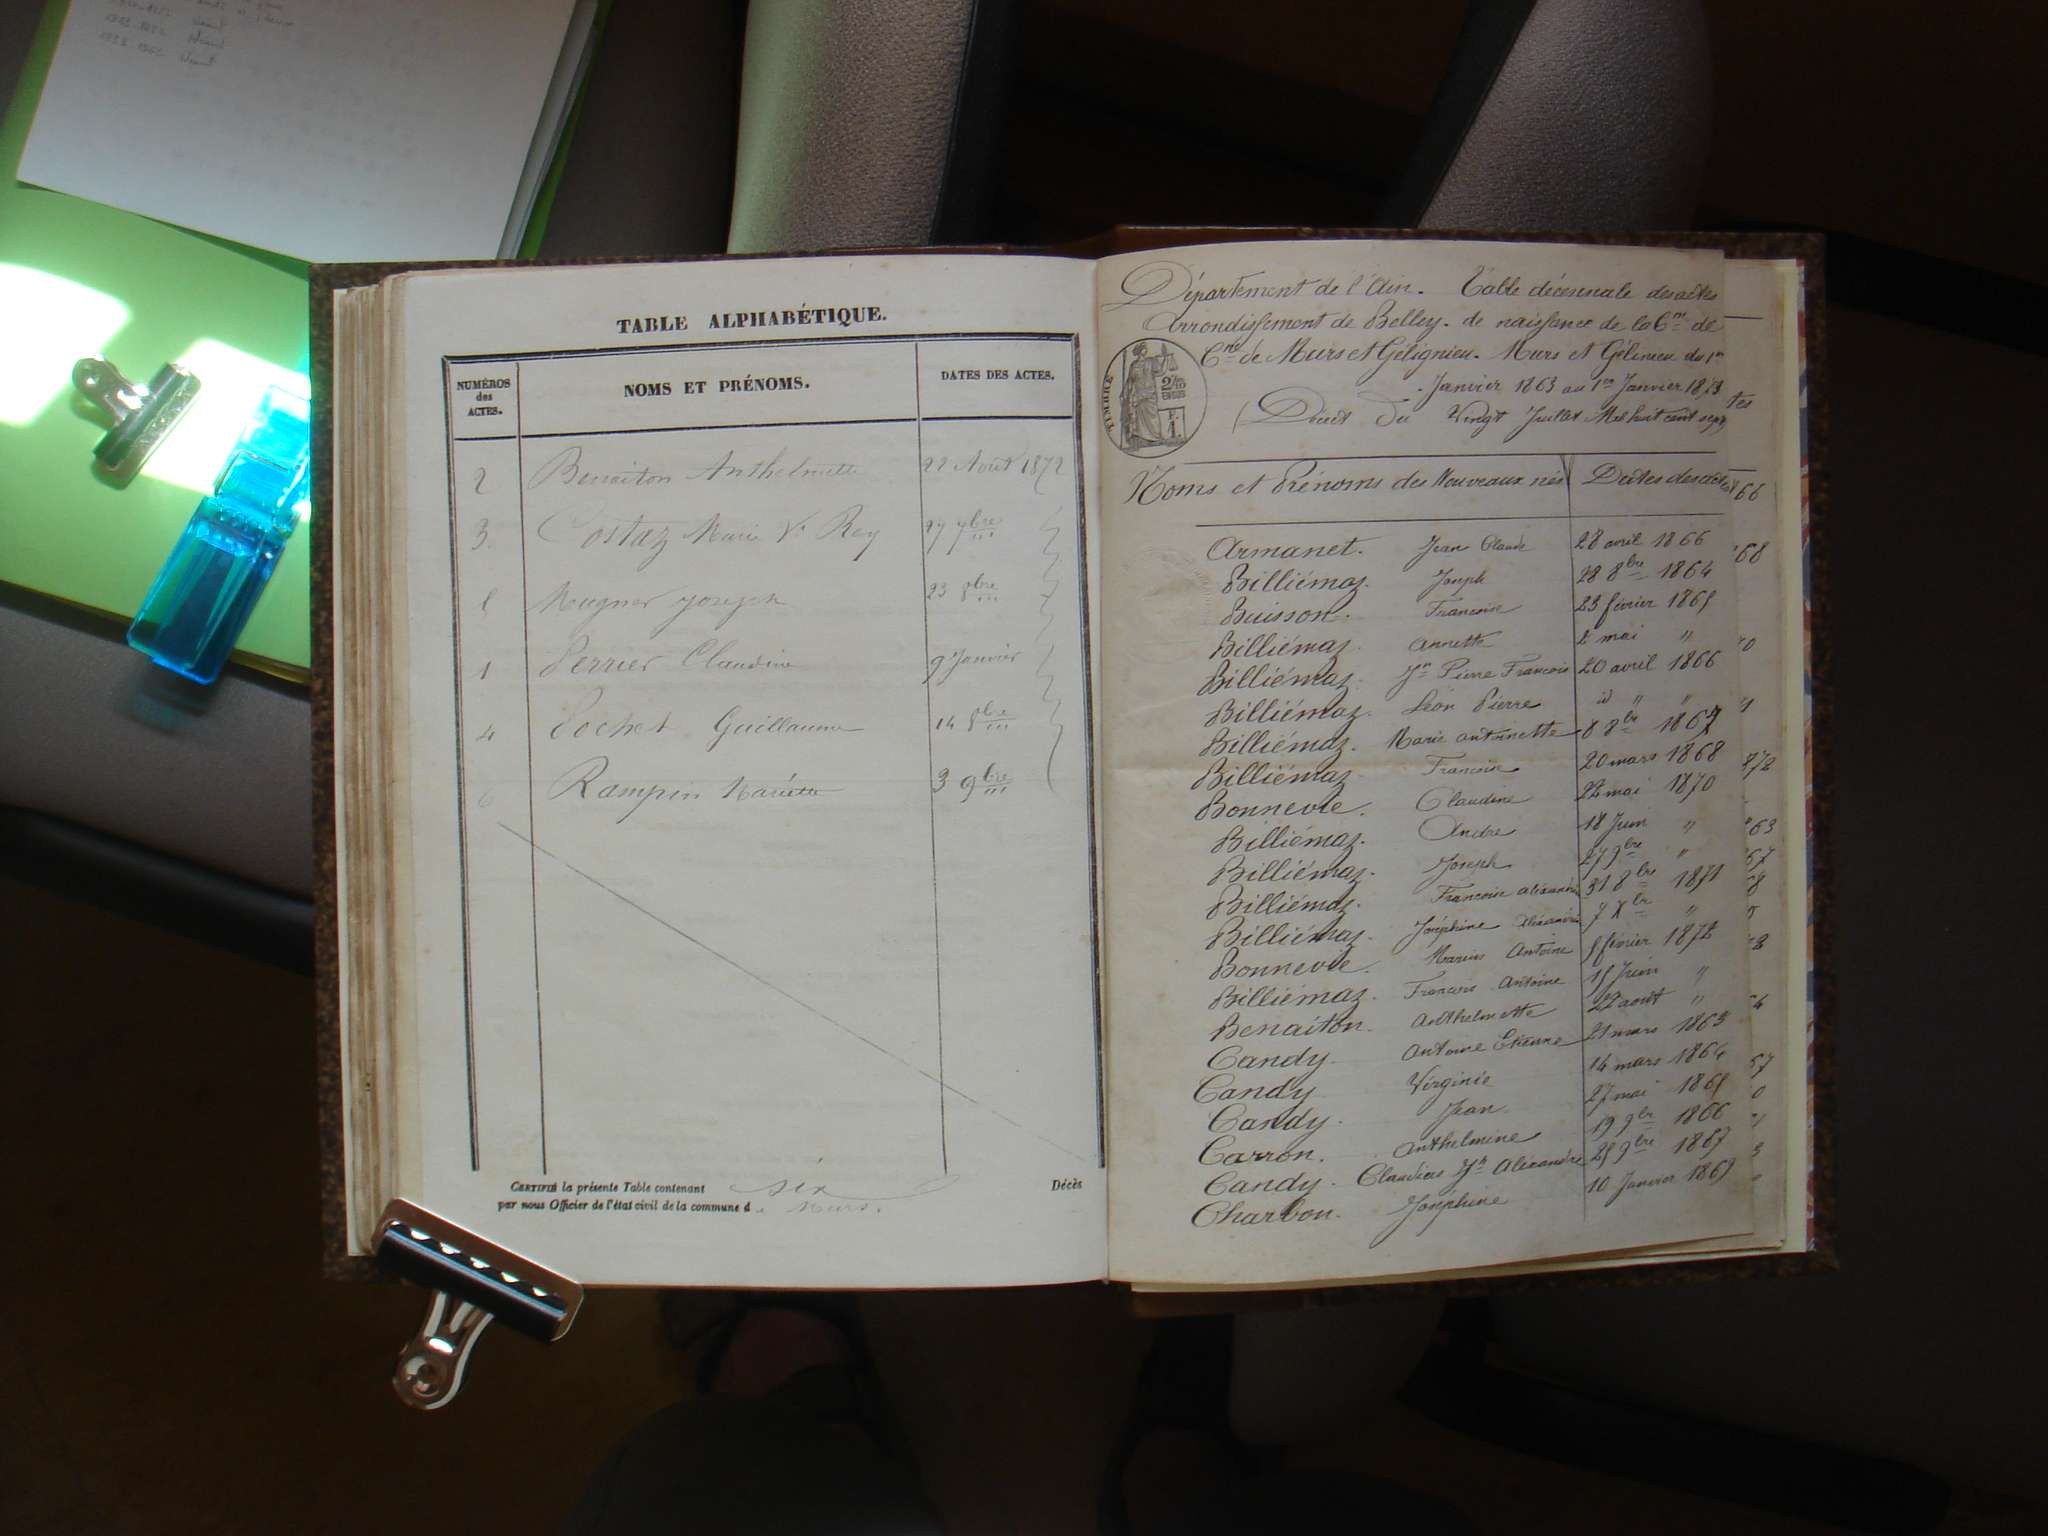 TABLE ALPHABÉTIQUE.
NUMÉROS des ACTES. NOMS ET PRÉNOMS. DATES DES ACTES.
2 Benaiton Anthelmette 22 Août 1872
3. Costaz Marie Ve Rey 27 7bre
5 Mugnier Joseph 23 8bre
1 Perrier Claudine 9 Janvier
4 Pochet Guillaume 14 8bre
6 Rampin Mariette 3 9bre
CERTIFIÉ la présente Table contenant six Décès
par nous Officier de l'état civil de la commune de Murs.
Département de l'Ain. Table décennale des actes
Arrondissement de Belley. de naissance de la Cne de
Cne de Murs et Gélignieu. Murs et Gélinieu du 1er
Janvier 1863 au 1er Janvier 1873
(Décret du Vingt Juillet Mil huit cent sept)
TIMBRE
2/10 EN SUS
F. 1.
Noms et Prénoms des Nouveaux nés Dates des actes
Armanet. Jean Claude 28 avril 1866
Billiémaz. Joseph 28 8bre 1864
Buisson. Francoise 23 février 1865
Billiémaz. Annette 2 mai "
Billiémaz. Jn Pierre Francois 20 avril 1866
Billiémaz. Léon Pierre id " "
Billiémaz. Marie Antoinette 8 8bre 1867
Billiémaz Francoise 20 mars 1868
Bonnevie. Claudine 22 mai 1870
Billiémaz. André 18 Juin "
Billiémaz. Joseph 27 9bre "
Billiémaz. Francoise Alexandrine 31 8bre 1871
Billiémaz. Joséphine Alexandrine 7 Xbre "
Bonnevie. Marius Antoine 5 février 1872
Billiémaz. Francois Antoine 15 Juin "
Benaiton. Anthelmette 22 août "
Candy. Antoine Etienne 21 mars 1863
Candy Virginie 14 mars 1864
Candy. Jean 27 mai 1865
Carron. Anthelmine 19 9bre 1866
Candy. Claudius Jh Alexandre 25 9bre 1867
Charbon. Joséphine 10 Janvier 1867